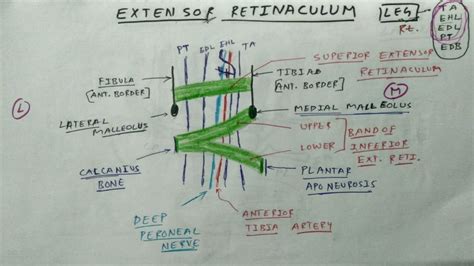 EXTENSOR RETINACULUM
LEG
Rt.
TA
EHL
EDL
PT
EDB
PT EDL EHL TA
SUPERIOR EXTENSOR
RETINACULUM
FIBULA
[ANT. BORDER]
TIBIA
[ANT. BORDER]
L
M
LATERAL
MALLEOLUS
MEDIAL MALLEOLUS
UPPER
LOWER
BAND OF
INFERIOR
EXT. RETI.
CALCANIUS
BONE
PLANTAR
APONEUROSIS
DEEP
PERONEAL
NERVE
ANTERIOR
TIBIA ARTERY